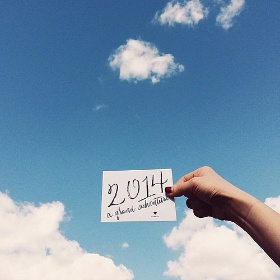 2014
a grand adventure